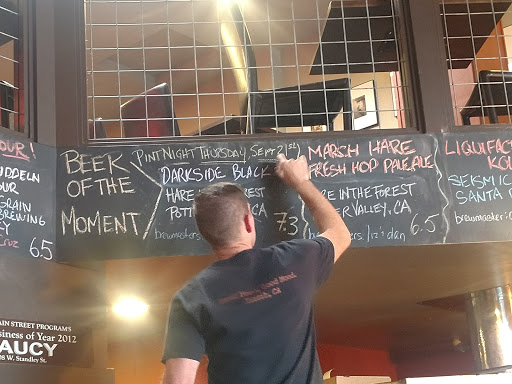 OUR!
DDELN
OUR
GRAIN
BREWING
Cruz
6.5
BEEK
OF THE
MOMENT
PINT NIGHT THURSDAY, SEPT 21st)
DARKSIDE BLACK
HARE
REST
POTT
CA
brewmasters
7.3
MARSH HARE
FRESH HOP PALE ALE
RE IN THE FOREST
ER VALLEY, CA
12's dan
6.5
LIQUIFAC
KOL
SEISMIC
SANTA
brewmaster:
AIN STREET PROGRAM'S
siness of Year 2012
AUCY
W. Standley St.